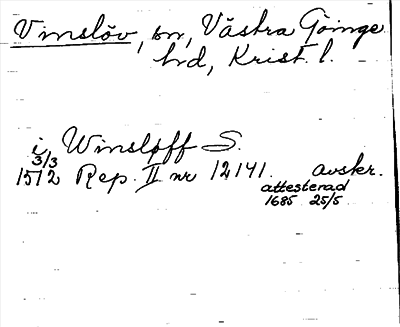 Vinslöv, sn, Västra Göinge
hd, Krist. l.
i Winsløff S.
3/3
1512 Rep. II nr 12141. avskr.
attesterad
1685 25/5